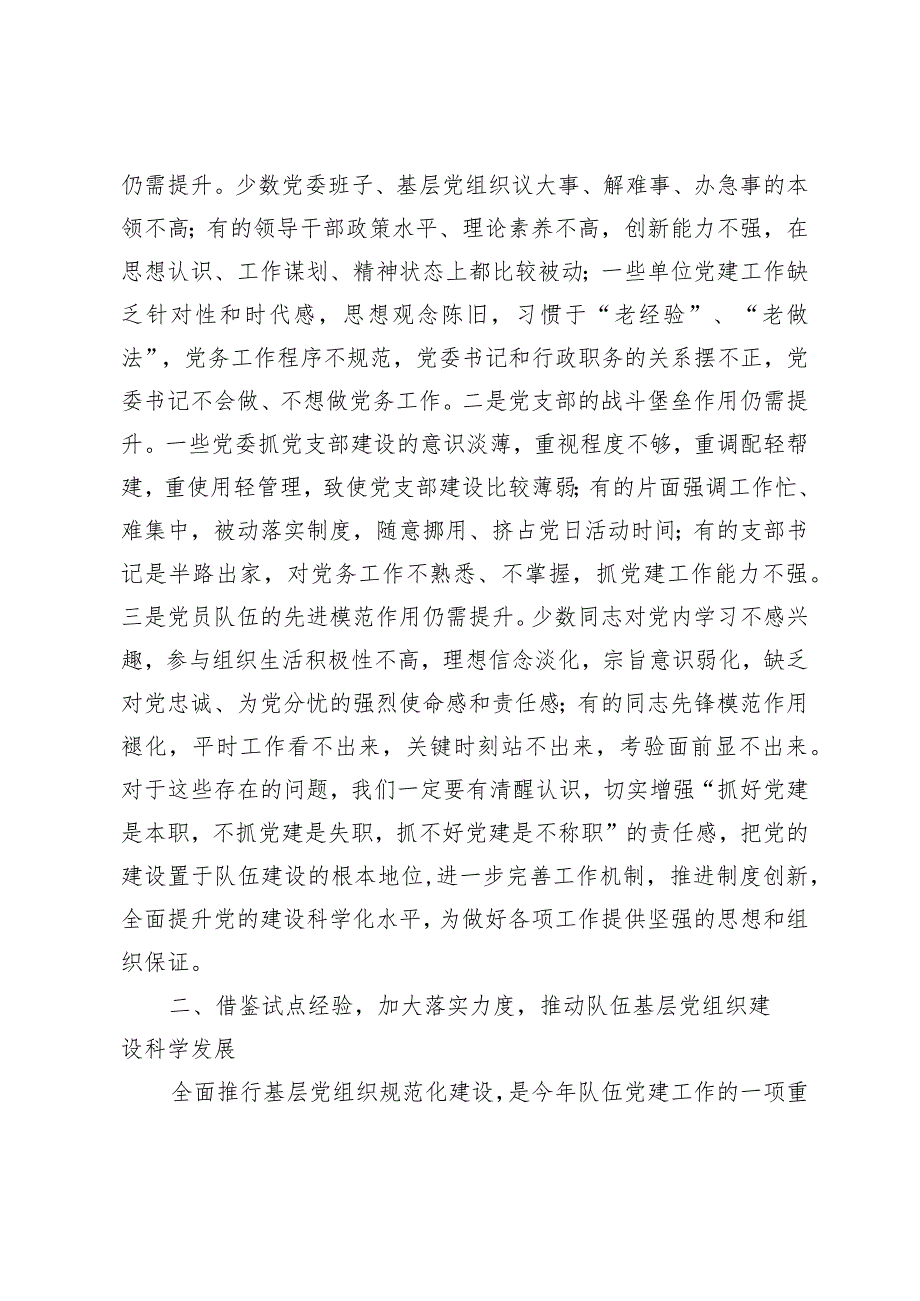 仍需提升。少数党委班子、基层党组织议大事、解难事、办急事的本
领不高；有的领导干部政策水平、理论素养不高，创新能力不强，在
思想认识、工作谋划、精神状态上都比较被动；一些单位党建工作缺
乏针对性和时代感，思想观念陈旧，习惯于“老经验”、“老做
法”，党务工作程序不规范，党委书记和行政职务的关系摆不正，党
委书记不会做、不想做党务工作。二是党支部的战斗堡垒作用仍需提
升。一些党委抓党支部建设的意识淡薄，重视程度不够，重调配轻帮
建，重使用轻管理，致使党支部建设比较薄弱；有的片面强调工作忙、
难集中，被动落实制度，随意挪用、挤占党日活动时间；有的支部书
记是半路出家，对党务工作不熟悉、不掌握，抓党建工作能力不强。
三是党员队伍的先进模范作用仍需提升。少数同志对党内学习不感兴
趣，参与组织生活积极性不高，理想信念淡化，宗旨意识弱化，缺乏
对党忠诚、为党分忧的强烈使命感和责任感；有的同志先锋模范作用
褪化，平时工作看不出来，关键时刻站不出来，考验面前显不出来。
对于这些存在的问题，我们一定要有清醒认识，切实增强“抓好党建
是本职，不抓党建是失职，抓不好党建是不称职”的责任感，把党的
建设置于队伍建设的根本地位,进一步完善工作机制，推进制度创新，
全面提升党的建设科学化水平，为做好各项工作提供坚强的思想和组
织保证。
二、借鉴试点经验，加大落实力度，推动队伍基层党组织建
设科学发展
全面推行基层党组织规范化建设，是今年队伍党建工作的一项重